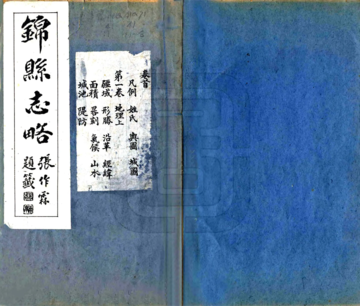 錦縣志略
張作霖
趙籤
卷首
凡例 姓氏 輿圖 城圖
第一卷 地理上
疆域 形勝 沿革 經緯
面積 晷刻 氣候 山水
城池 隄防